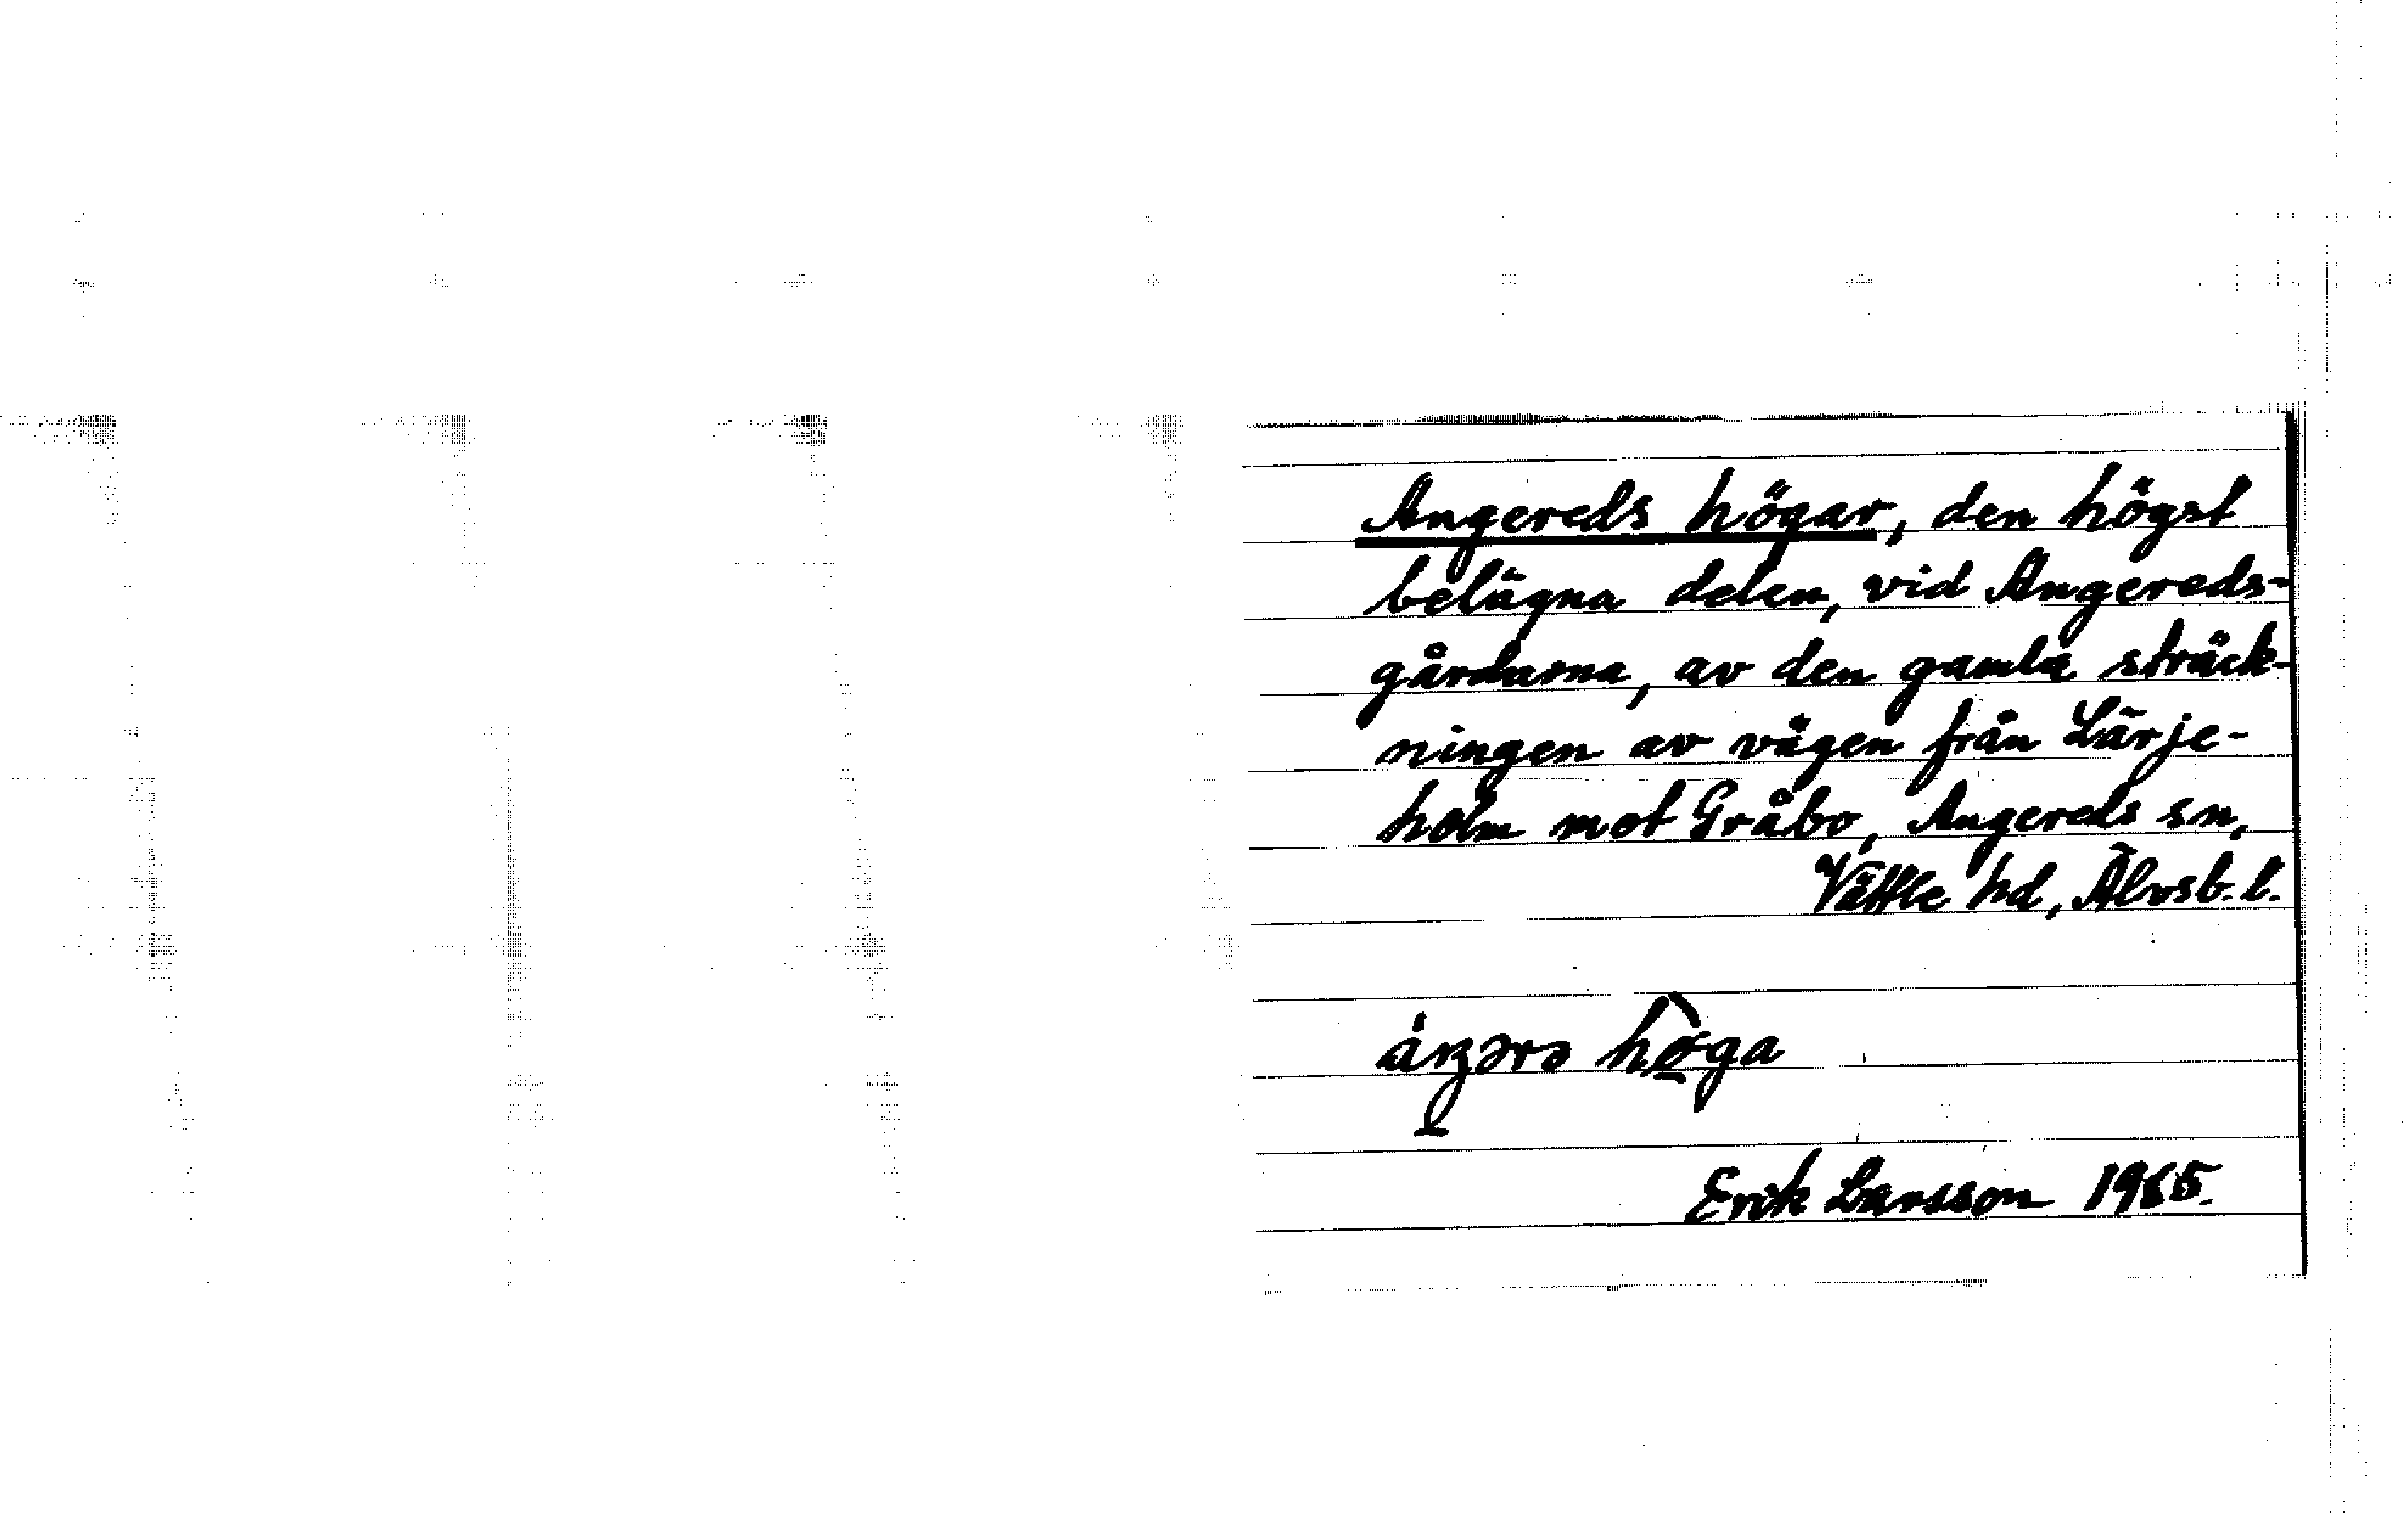 Angereds högar, den högst
belägna delen, vid Angereds-
gårdarna, av den gamla sträck-
ningen av vägen från Lärje-
holm mot Gråbo, Angereds sn,
Vättle hd, Älvsb. l.
höga
Erik Larsson 1965.